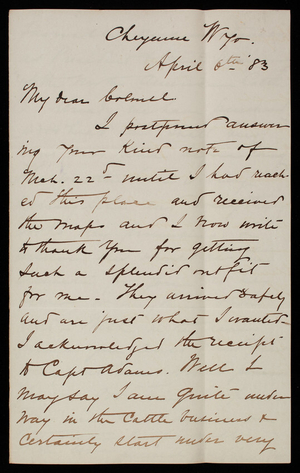 Cheyenne Wyo.
April 6th '83
My dear Colonel
I postponed answer
ing your kind note of
Mch. 22d until I had reach
ed this place and received
the maps and I now write
to thank you for getting
such a splendid outfit
for me - They arrived safely
and are just what I wanted -
I acknowledged the receipt
to Capt Adams. Well I
may say I am quite under
way in the Cattle business &
Certainly start under very